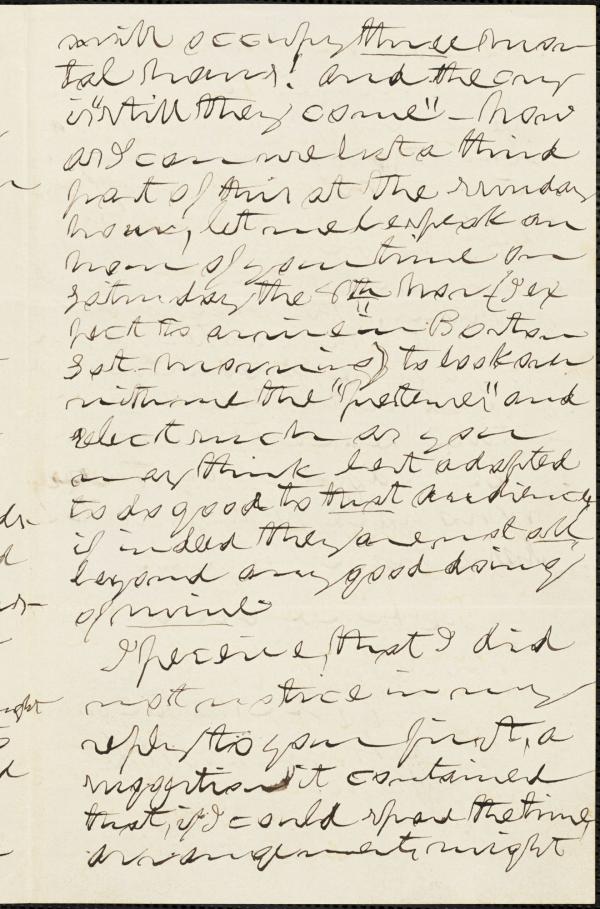 will occupy three mor-
tal hours! and the cry
is "still they come" - Now
as I can use but a third
part of this at the Sunday
hour, let me bespeak an
hour of your time on
Saturday the 8th Nov (I ex
pect to arrive in Boston
Sat- morning) to look over
with me the "pictures" and
select such as you
may think best adapted
to do good to that audience
if indeed they are not all
beyond any good doing
of mine.
I perceive, that I did
not notice in my
reply to your first, a
suggestion it contained
that, if I could spare the time,
arrangements might